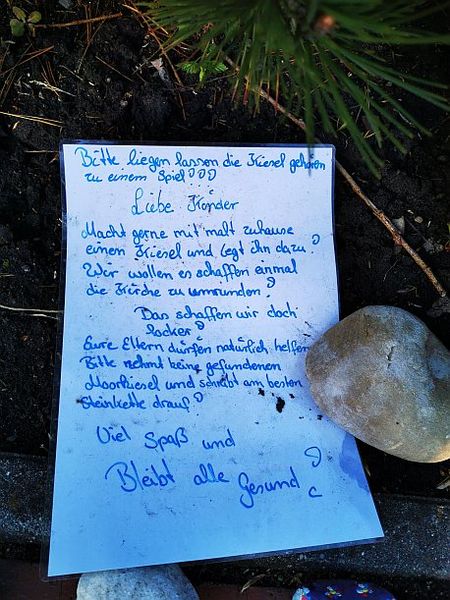 Bitte liegen lassen die Kiesel gehören
zu einem Spiel!!!
Liebe Kinder
Macht gerne mit malt zuhause
einen Kiesel und legt ihn dazu!
Wir wollen es schaffen einmal
die Kirche zu umrunden!
Das schaffen wir doch
locker!
Eure Eltern dürfen natürlich helfen
Bitte nehmt keine gefundenen
Moorkiesel und schreibt am besten
Steinkette drauf!
Viel Spaß und
Bleibt alle Gesund!